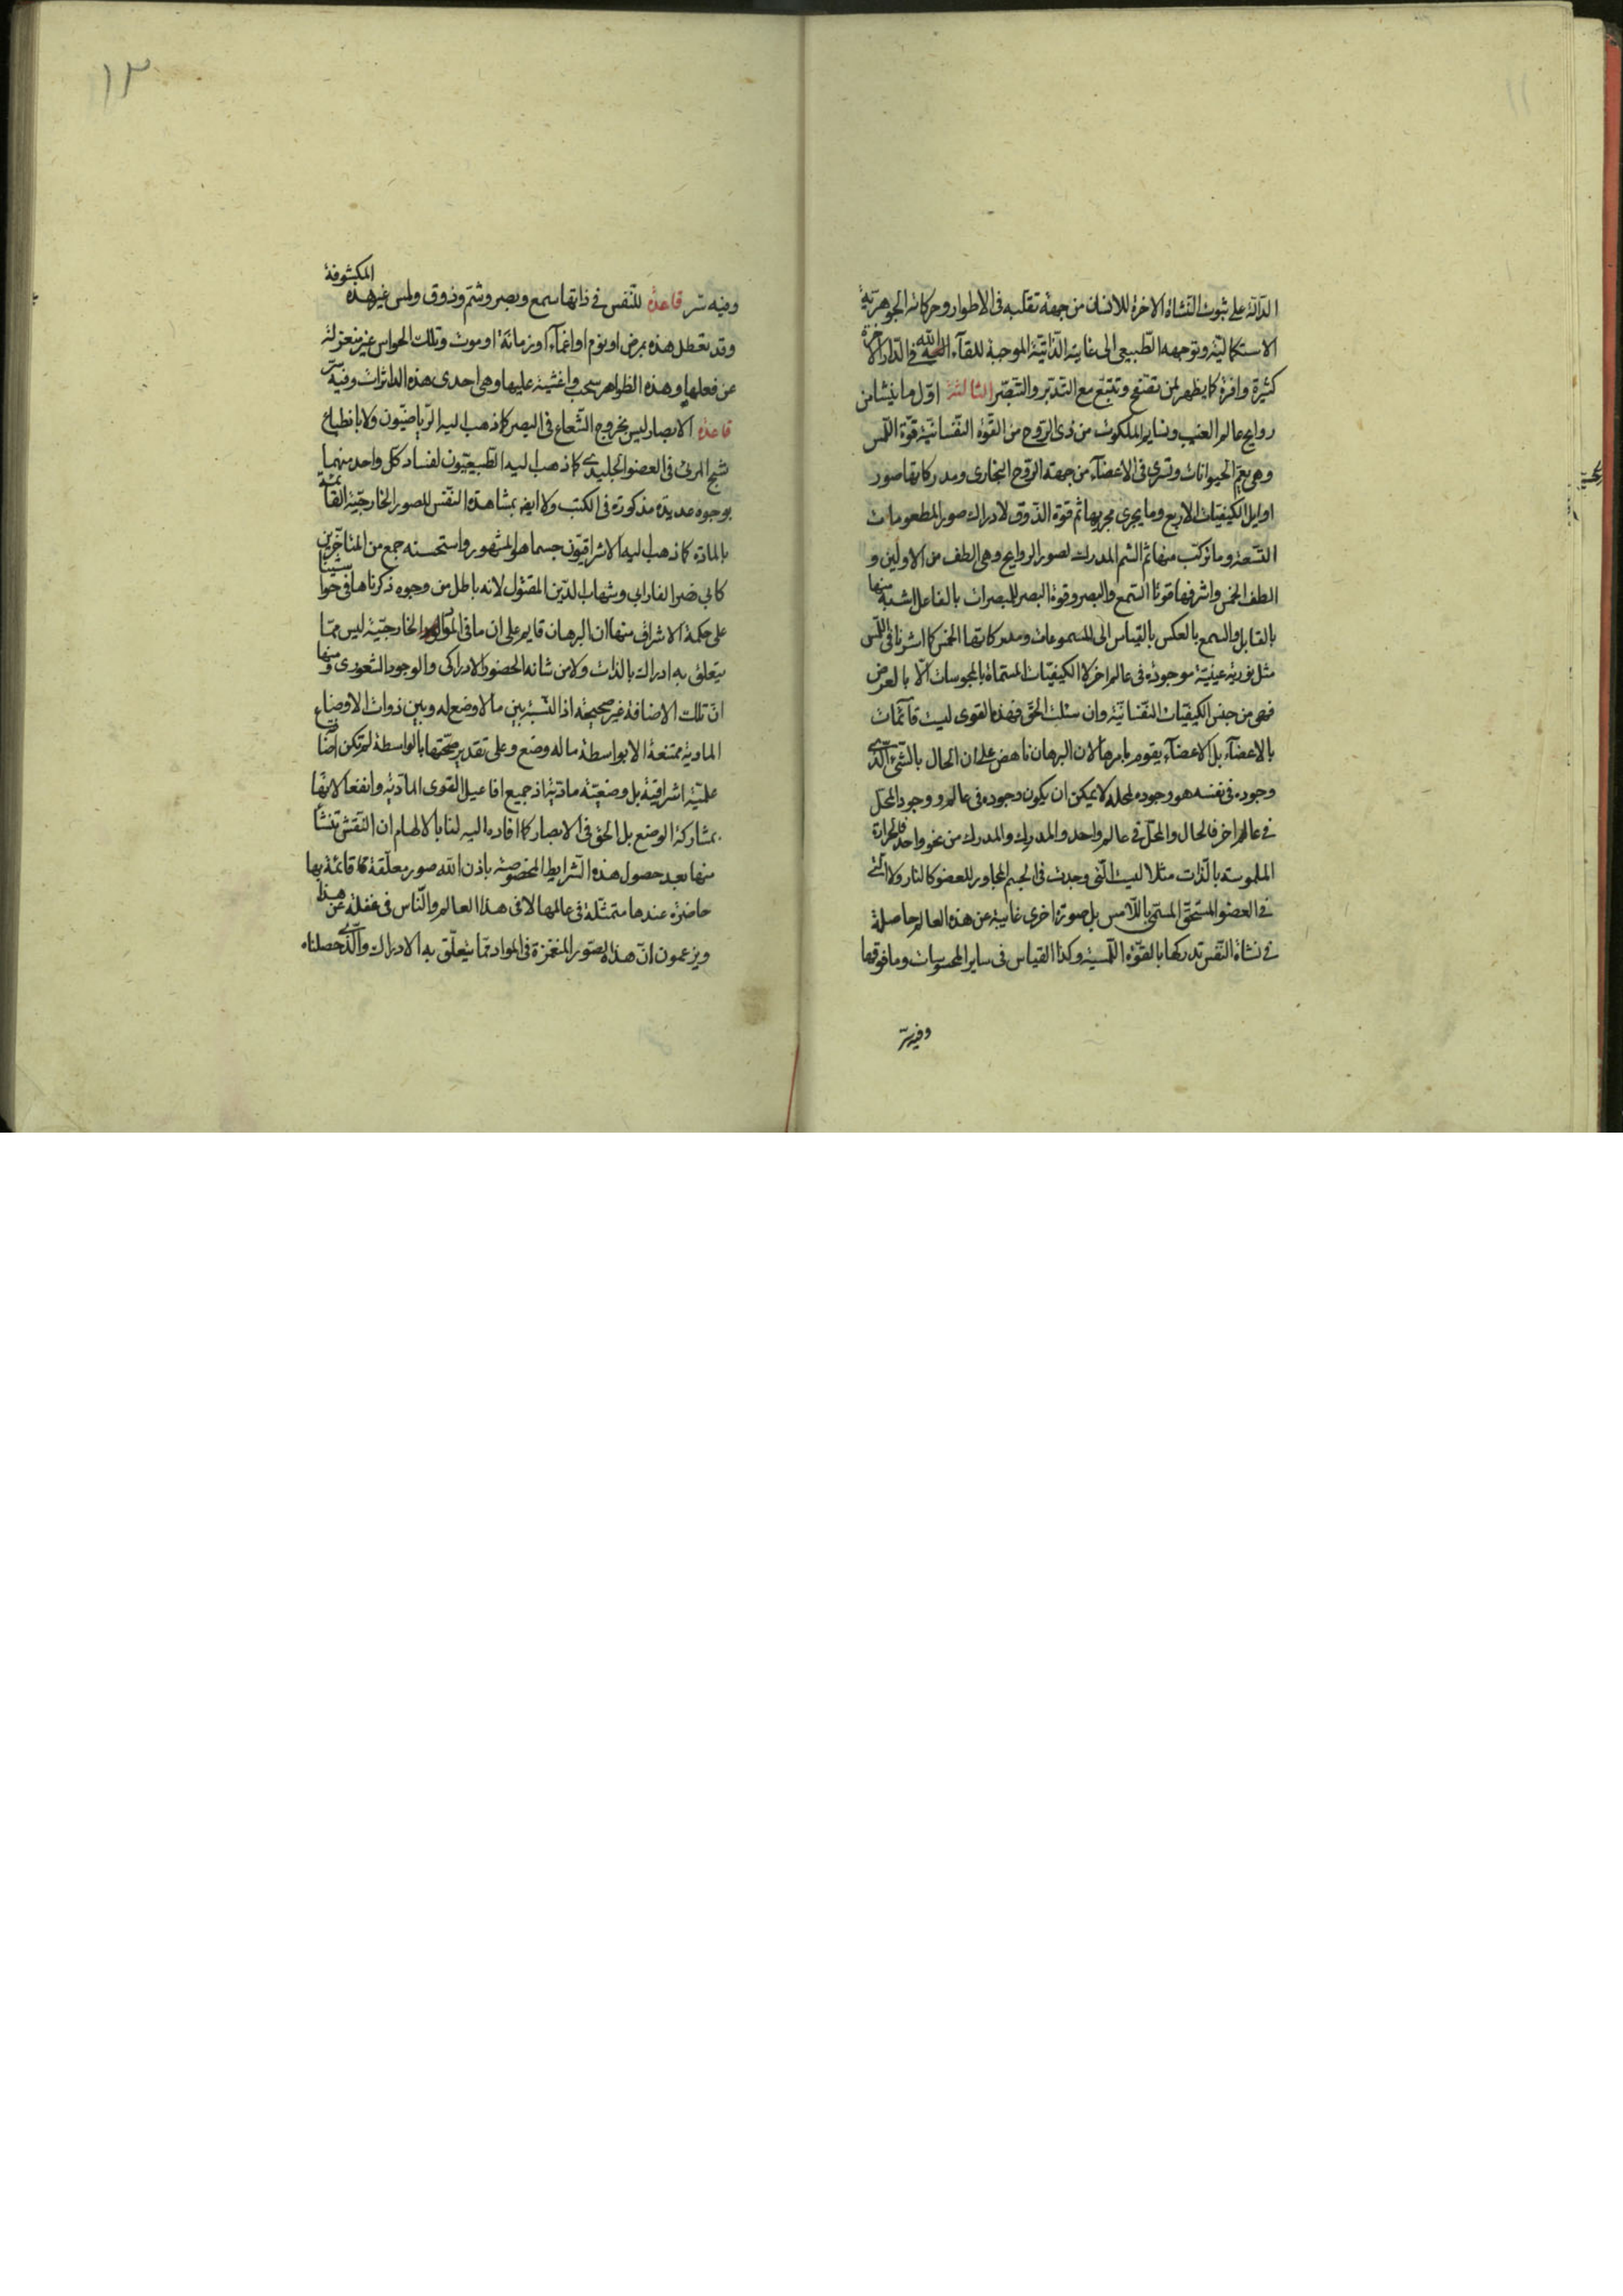 الدالة على ثبوت النشاة الاخرة للانسان من جهة تقلبه فى الاطوار وحركاته الجوهرية
الاستكمالية وتوجهه الطبيعى الى غايته الذاتية الموجبة للقآء الله فى الدار الاخرة
كثيرة وافرة كما يظهر لمن تفتح وتتبع مع التدبر والتبصر الثالثة اول ما ينشا من
روايح عالم الغيب ونسايم الملكوت من ذى الروح من القوة النفسانية قوة اللمس
وهى يعم الحيوانات وتسرى فى الاعضآء من جهة الروح البخارى ومدركاتها صور
اوايل الكيفيات الاربع وما يجرى مجريها ثم قوة الذوق لادراك صور المطعومات
التسعة وما تركب منها ثم الشم المدرك لصور الروايح وهى الطف من الاولين و
الطف الخمس واشرفها قوتا السمع والبصر وقوة البصر للمبصرات بالفاعل اشبه منها
بالقابل والسمع بالعكس بالقياس الى المسموعات ومدركاتها الخمس كما اشرنا فى اللمس
مثل نورية عينية موجودة فى عالم اخر لا الكيفيات المسماة بالمحسوسات الا بالعرض
فهى من جنس الكيفيات النفسانية وان سئلت الحق فهذه القوى ليست قآئمات
بالاعضآء بل الاعضآء يقوم بامرها لان البرهان ناهض على ان الحال بالشئ الذى
وجوده فى نفسه هو وجوده لمحله لا يمكن ان يكون وجوده فى عالم ووجود المحل
فى عالم اخر فالحال والمحل فى عالم واحد والمدرك والمدرك من نحو واحد فالحرارة
الملموسة بالذات مثلا ليست التى وجدت فى الجسم المجاور للعضو كالنار ولا التى
فى العضو المستحق المسمى باللامس بل صورة اخرى غايبة عن هذه العالم حاصلة
فى نشاة النفس تدركها بالقوة اللمسية وكذا القياس فى ساير المحسوسات وما فوقها
وفيه سر
١٣
وفيه سر قاعدة للنفس فى ذاتها سمع وبصر وشم وذوق ولمس غير هذه المكشوفة
وقد تعطل هذه بمرض او نوم او اغمآء او زمانة او موت وتلك الحواس غير منعزلة
عن فعلها وهذه الظواهر سحب واغشية عليها وهى احدى هذه الداثرات وفيه سر
قاعدة الابصار ليس بخروج الشعاع فى البصر كما ذهب اليه الرياضيون ولا بانطباع
شبح المرئ فى العضو الجليدى كما ذهب اليه الطبيعيون لفساد كل واحد منهما
بوجوه عديدة مذكورة فى الكتب ولا ايضا بمشاهدة النفس للصور الخارجية القائمة
بالمادة كما ذهب اليه الاشراقيون حسبما هو المشهور واستحسنه جمع من المتأخرين
كابى نصر الفارابى وشهاب الدين المقتول لانه باطل من وجوه ذكرناها فى حواشينا
على حكمة الاشراق منها ان البرهان قايم على ان ما فى المواد الخارجية ليس مما
يتعلق به ادراك بالذات ولا من شانه الحضور الادراكى والوجود الشعورى ومنها
ان تلك الاضافة غير صحيحة اذ النسبة بين ما لا وضع له وبين ذوات الاوضاع
المادية ممتنعة الا بواسطة ما له وضع وعلى تقدير صحتها بالواسطة لم تكن اضافة
علمية اشراقية بل وضعية مادية اذ جميع افاعيل القوى المآدية وانفعالاتها
بمشاركة الوضع بل الحق فى الابصار كما افاده اليه لنا بالالهام ان النفس تنشأ
منها بعد حصول هذه الشرايط المخصوصة باذن الله صور معلقة قائمة بها
حاضرة عندها متمثلة فى عالمها لا فى هذا العالم والناس فى غفلة عن هذا
ويزعمون ان هذا الصور المنغمزة فى المواد مما يتعلق به الادراك والذى حصلناه